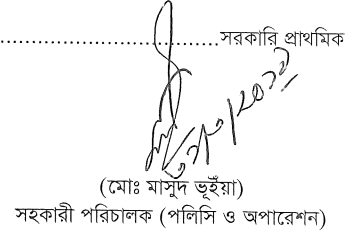 ..............................................সরকারি প্রাথমিক
(মোঃ মাসুদ ভূইঁয়া)
সহকারী পরিচালক (পলিসি ও অপারেশন)